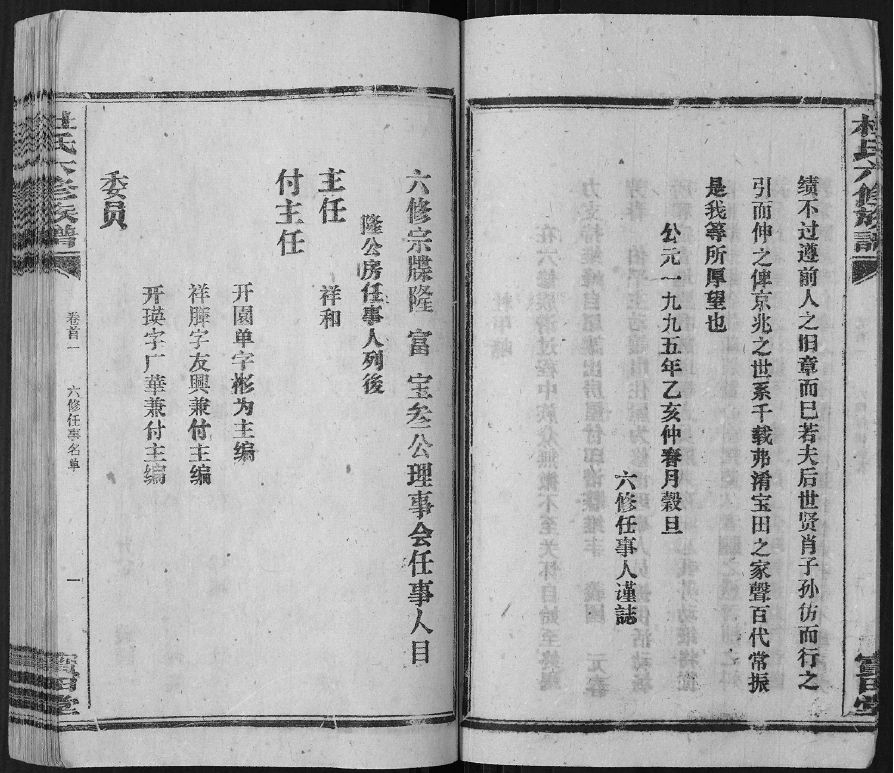 杜氏六修族譜
寶田堂
绩不过遵前人之旧章而已若夫后世贤肖子孙仿而行之
引而伸之俾京兆之世系千载弗淆宝田之家聲百代常振
是我等所厚望也
公元一九九五年乙亥仲春月穀旦
六修任事人谨誌
六修宗牒隆 富 宝叁公理事会任事人目
隆公房任事人列後
主任 祥和
付主任
开圍单字彬为主编
祥 字友興兼付主编
开瑛字广華兼付主编
委员
杜氏六修族譜
卷首一 六修任事名单 一
寶田堂